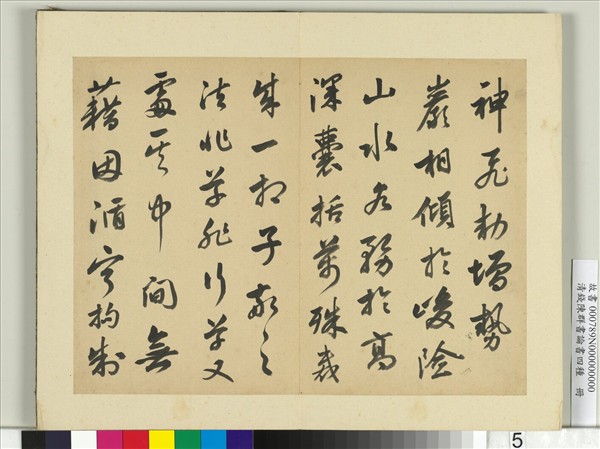 神飛動增勢
巖相傾於峻險
山水各務於高
深囊括萬殊裁
成一相子敬之
法非草非行草又
處其中間無
藉因循寧拘制
故書000789N000000000
清錢陳群書論書四種 冊
5